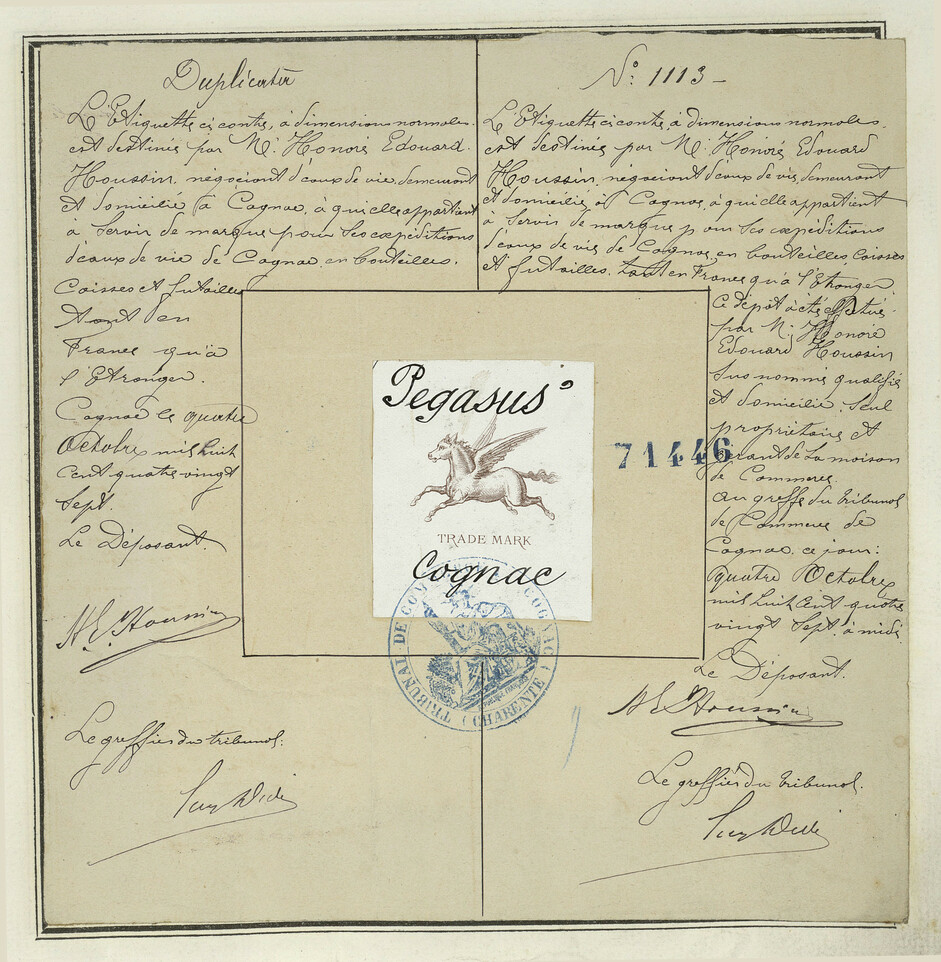 Duplicata
L'Etiquette ci contre, à dimensions normales.
est destinée par Mr. Honoré Edouard.
Houssin, négociant d'eaux de vie, demeurant
et domicilié à Cognac, à qui elle appartient
à servir de marque pour ses expéditions
d'eaux de vie de Cognac, en bouteilles.
Caisses et futailles
tant en
France qu'à
l'Etranger.
Cognac le quatre
Octobre mil huit
cent quatre vingt
Sept.
Le Déposant.
H. E. Houssin
Le greffier du tribunal.
No. 1113 -
L'Etiquette ci contre, à dimensions normales.
est destinée par Mr. Honoré Edouard
Houssin, négociant d'eaux de vie, demeurant
et domicilié à Cognac, à qui elle appartient
à servir de marque pour ses expéditions
d'eaux de vie de Cognac, en bouteilles, Caisses
et futailles, tant en France qu'à l'Etranger.
Ce dépôt a été effectué.
par Mr. Honoré
Edouard Houssin
sus nommé qualifié
et domicilié. Seul
propriétaire et
gérant de la maison
de Commerce.
au greffe du tribunal
de Commerce de
Cognac, ce jour:
quatre Octobre
mil huit cent quatre
vingt Sept. à midi
Le Déposant.
H E Houssin
Le greffier du tribunal.
Pegasus
TRADE MARK
Cognac
71446
TRIBUNAL DE COMMERCE COGNAC (CHARENTE)